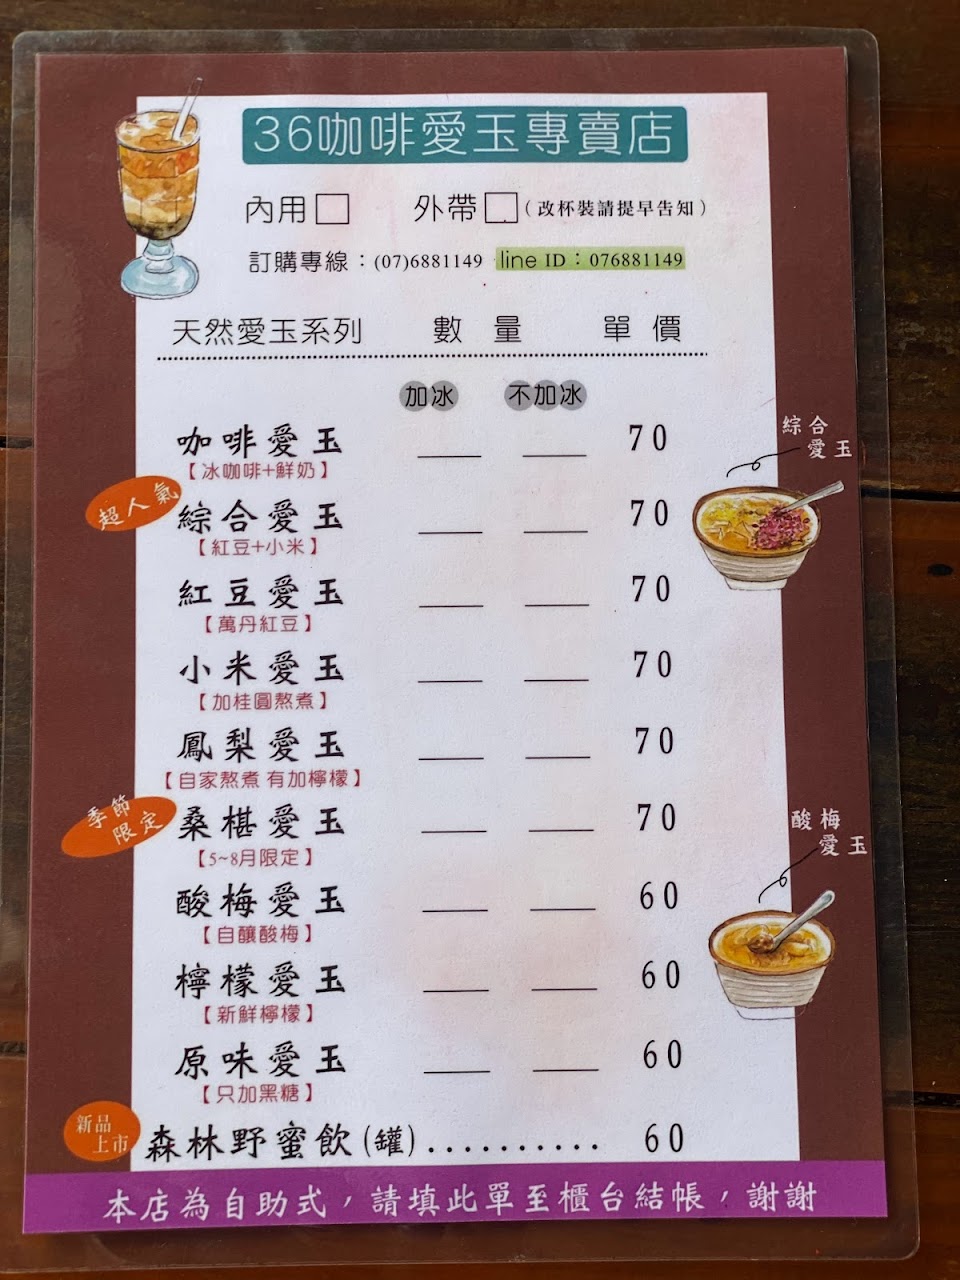 36咖啡愛玉專賣店
內用□ 外帶□(改杯裝請提早告知)
訂購專線：(07)6881149 line ID：076881149
天然愛玉系列 數量 單價
加冰 不加冰
咖啡愛玉 70
【冰咖啡+鮮奶】
綜合愛玉
超人氣
綜合愛玉 70
【紅豆+小米】
紅豆愛玉 70
【萬丹紅豆】
小米愛玉 70
【加桂圓熬煮】
鳳梨愛玉 70
【自家熬煮 有加檸檬】
季節限定
桑椹愛玉 70
【5~8月限定】
酸梅愛玉
酸梅愛玉 60
【自釀酸梅】
檸檬愛玉 60
【新鮮檸檬】
原味愛玉 60
【只加黑糖】
新品上市
森林野蜜飲(罐).......... 60
本店為自助式，請填此單至櫃台結帳，謝謝